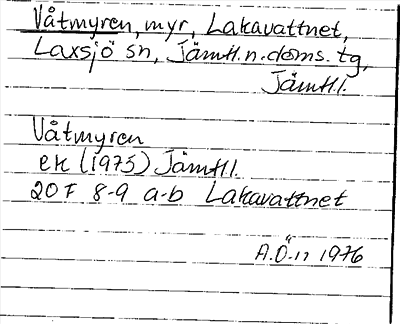 Våtmyren, myr, Lakavattnet,
Laxsjö sn, Jämtl.n.doms.tg,
Jämtl.l.
Våtmyren
ek (1975) Jämtl.l.
20 F 8-9 a-b Lakavattnet
A.Ö-n 1976